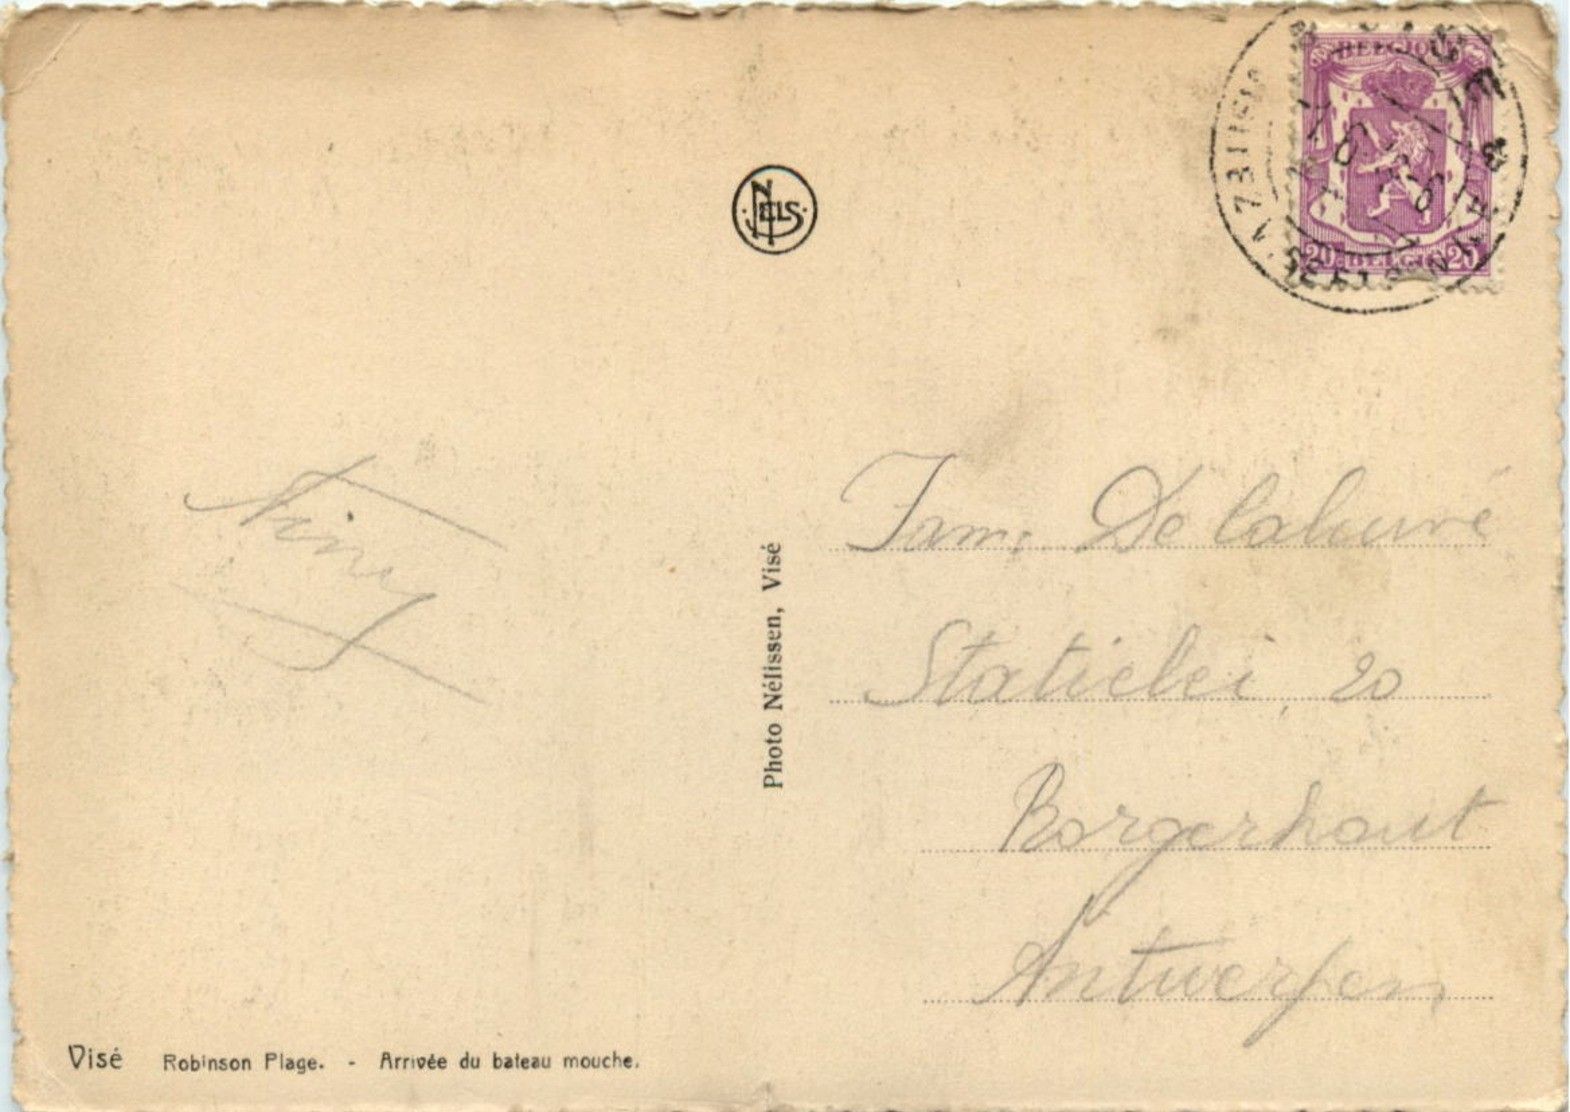 NELS
BELGIQUE
20 BELGIE 20
Niny
Photo Nélissen, Visé
Fam. De Labouré
Statielei, 20
Borgerhout
Antwerpen
Visé Robinson Plage. - Arrivée du bateau mouche.